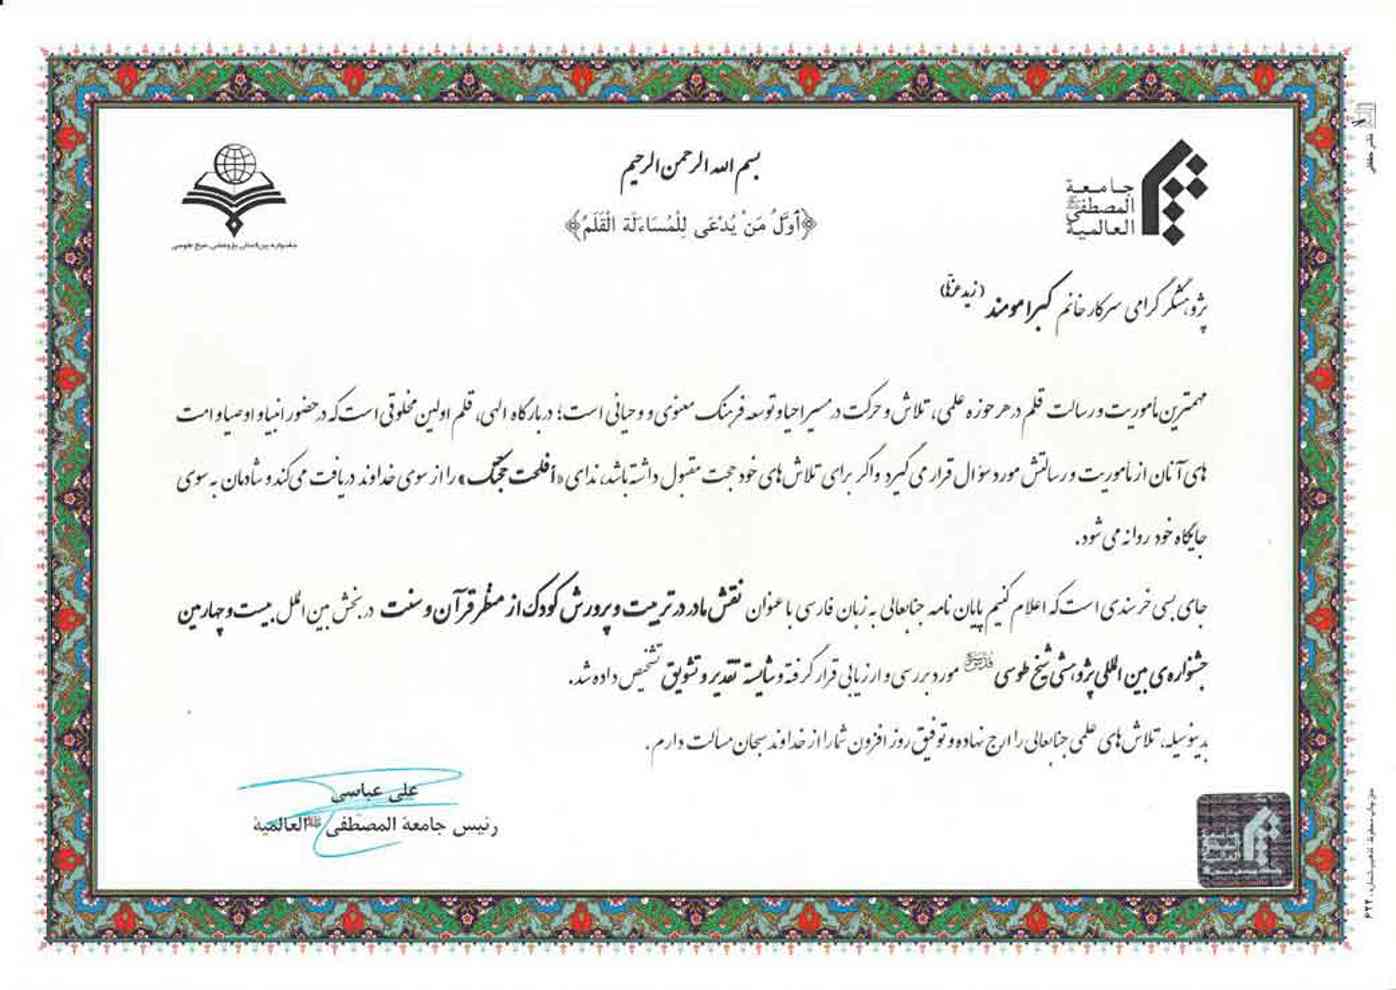 بسم الله الرحمن الرحیم
﴿أَوَّلُ مَنْ يُدْعَى لِلْمُسَاءَلَة الْقَلَمُ﴾
جامعة
المصطفی
العالمیة
جشنواره بین‌المللی پژوهشی شیخ طوسی
پژوهشگر گرامی سرکار خانم کبرا مومند (زید عزها)
مهمترین مأموریت و رسالت قلم در هر حوزه علمی، تلاش و حرکت در مسیر احیا و توسعه فرهنگ معنوی و وحیانی است؛ در بارگاه الهی، قلم اولین مخلوقی است که در حضور انبیا و اوصیا و امت
های آنان از مأموریت و رسالتش مورد سؤال قرار می گیرد و اگر برای تلاش های خود حجت مقبول داشته باشد، ندای «أفلحت حجتک» را از سوی خداوند دریافت می کند و شادمان به سوی
جایگاه خود روانه می شود.
جای بسی خرسندی است که اعلام کنیم پایان نامه جنابعالی به زبان فارسی با عنوان نقش مادر در تربیت و پرورش کودک از منظر قرآن و سنت در بخش بین الملل بیست و چهارمین
جشنواره ی بین المللی پژوهشی شیخ طوسی قدس سره مورد بررسی و ارزیابی قرار گرفته و شایسته تقدیر و تشویق تشخیص داده شد.
بدینوسیله، تلاش های علمی جنابعالی را ارج نهاده و توفیق روز افزون شما را از خداوند سبحان مسالت دارم.
علی عباسی
رئیس جامعة المصطفی ﷺ العالمیة